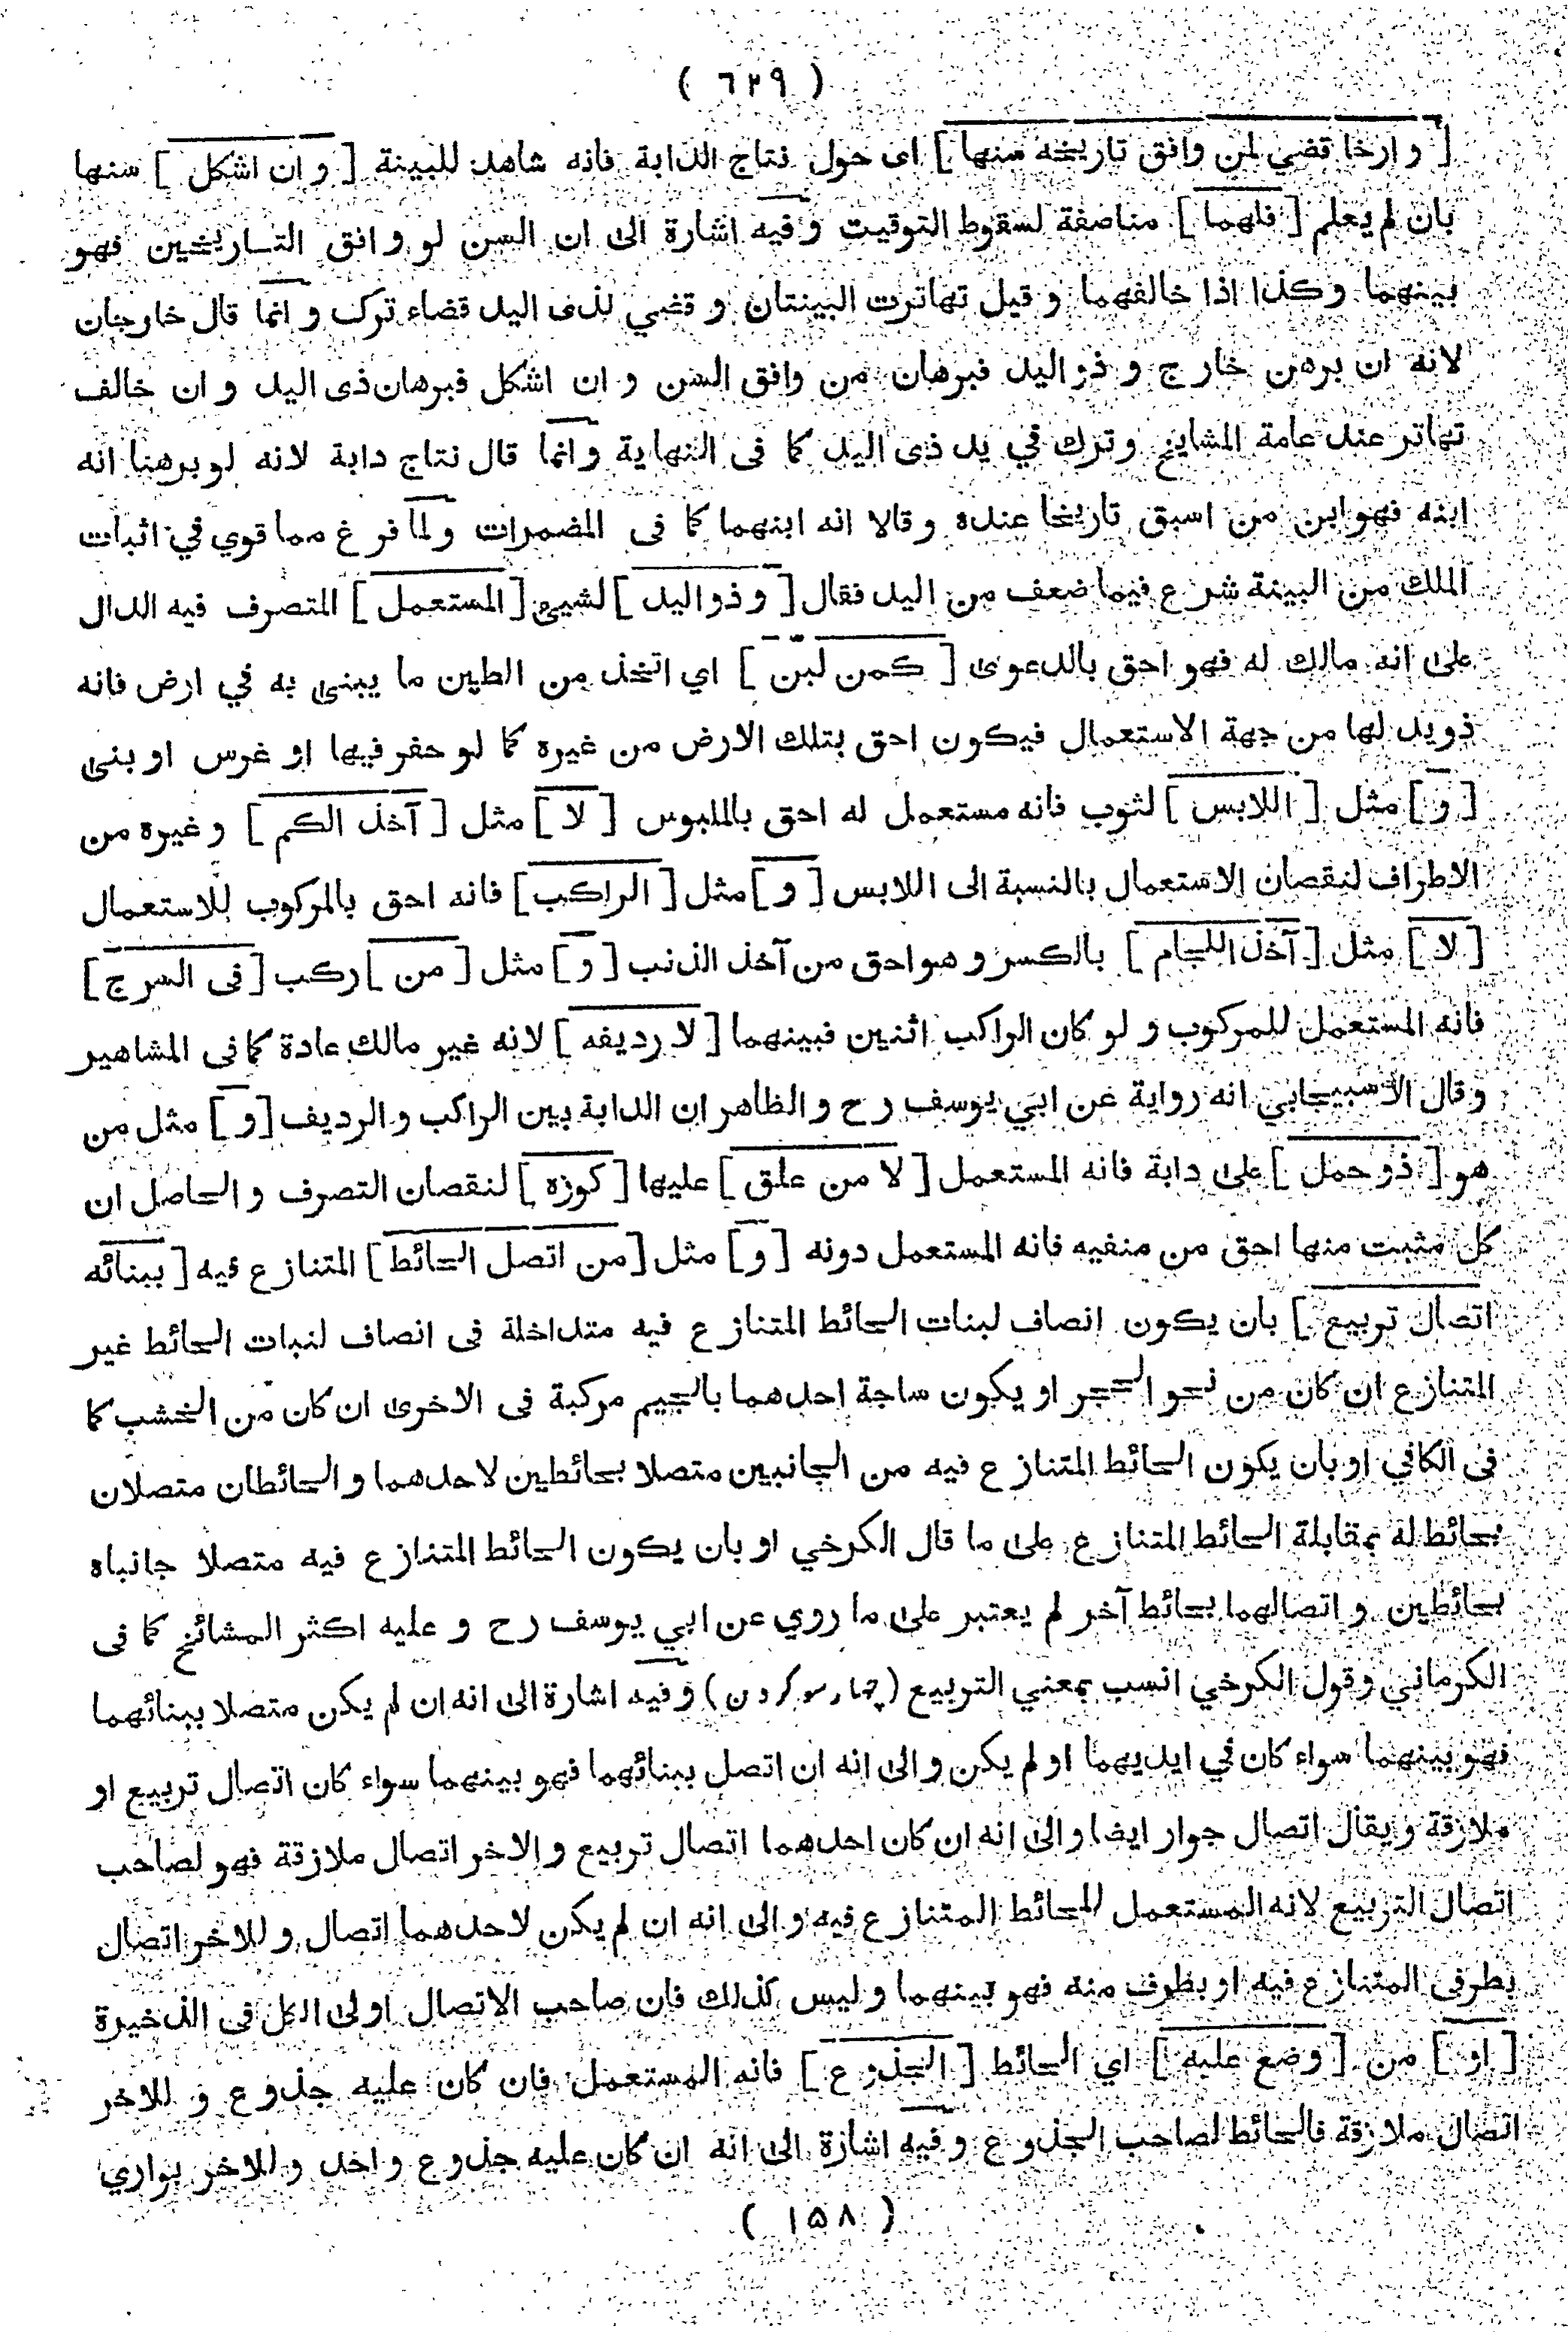 ( ٦٢٩ )
[ و ارخا قضي لمن وافق تاريخه سنها ] اى حول نتاج الدابة فانه شاهد للبينة [ و ان اشكل ] سنها
بان لم يعلم [ فلهما ] مناصفة لسقوط التوقيت وفيه اشارة الى ان السن لو وافق التاريخين فهو
بينهما وكذا اذا خالفهما و قيل تهاترت البينتان و قضي لذى اليد قضاء ترك و انما قال خارجان
لانه ان برهن خارج و ذو اليد فبرهان من وافق السن و ان اشكل فبرهان ذى اليد و ان خالف
تهاتر عند عامة المشايخ وترك في يد ذى اليد كما فى النهاية وانما قال نتاج دابة لانه لو برهنا انه
ابنه فهو ابن من اسبق تاريخا عنده وقالا انه ابنهما كما فى المضمرات ولما فرغ مما قوي في اثبات
الملك من البينة شرع فيما ضعف من اليد فقال [ و ذو اليد ] لشيئ [ المستعمل ] المتصرف فيه الدال
على انه مالك له فهو احق بالدعوى [ كمن لبن ] اي اتخذ من الطين ما يبنى به في ارض فانه
ذويد لها من جهة الاستعمال فيكون احق بتلك الارض من غيره كما لو حفر فيها او غرس او بنى
[ و ] مثل [ اللابس ] لثوب فانه مستعمل له احق بالملبوس [ لا ] مثل [ آخذ الكم ] وغيره من
الاطراف لنقصان الاستعمال بالنسبة الى اللابس [ و ] مثل [ الراكب ] فانه احق بالمركوب للاستعمال
[ لا ] مثل [ آخذ اللجام ] بالكسر و هو احق من آخذ الذنب [ و ] مثل [ من ] ركب [ فى السرج ]
فانه المستعمل للمركوب و لو كان الراكب اثنين فبينهما [ لا رديفه ] لانه غير مالك عادة كما فى المشاهير
وقال الاسبيجابي انه رواية عن ابي يوسف رح و الظاهر ان الدابة بين الراكب و الرديف [ و ] مثل من
هو [ ذو حمل ] على دابة فانه المستعمل [ لا من علق ] عليها [ كوزه ] لنقصان التصرف و الحاصل ان
كل مثبت منها احق من منفيه فانه المستعمل دونه [ و ] مثل [ من اتصل الحائط ] المتنازع فيه [ ببنائه
اتصال تربيع ] بان يكون انصاف لبنات الحائط المتنازع فيه متداخلة فى انصاف لنبات الحائط غير
المتنازع ان كان من نحو الحجر او يكون ساجة احدهما بالجيم مركبة فى الاخرى ان كان من الخشب كما
فى الكافي او بان يكون الحائط المتنازع فيه من الجانبين متصلا بحائطين لاحدهما و الحائطان متصلان
بحائط له بمقابلة الحائط المتنازع على ما قال الكرخي او بان يكون الحائط المتنازع فيه متصلا جانباه
بحائطين و اتصالهما بحائط آخر لم يعتبر على ما روي عن ابي يوسف رح و عليه اكثر المشائخ كما فى
الكرماني وقول الكرخي انسب بمعني التربيع ( چهار سو كردن ) وفيه اشارة الى انه ان لم يكن متصلا ببنائهما
فهو بينهما سواء كان في ايديهما او لم يكن و الى انه ان اتصل ببنائهما فهو بينهما سواء كان اتصال تربيع او
ملازقة ويقال اتصال جوار ايضا والى انه ان كان احدهما اتصال تربيع و الاخر اتصال ملازقة فهو لصاحب
اتصال التربيع لانه المستعمل للحائط المتنازع فيه و الى انه ان لم يكن لاحدهما اتصال و للاخر اتصال
بطرفى المتنازع فيه او بطرف منه فهو بينهما و ليس كذلك فان صاحب الاتصال اولى الكل فى الذخيرة
[ او ] من [ وضع عليه ] اي الحائط [ الجذوع ] فانه المستعمل فان كان عليه جذوع و للاخر
اتصال ملازقة فالحائط لصاحب الجذوع وفيه اشارة الى انه ان كان عليه جذوع واحد و للاخر بواري
( ١٥٨ )